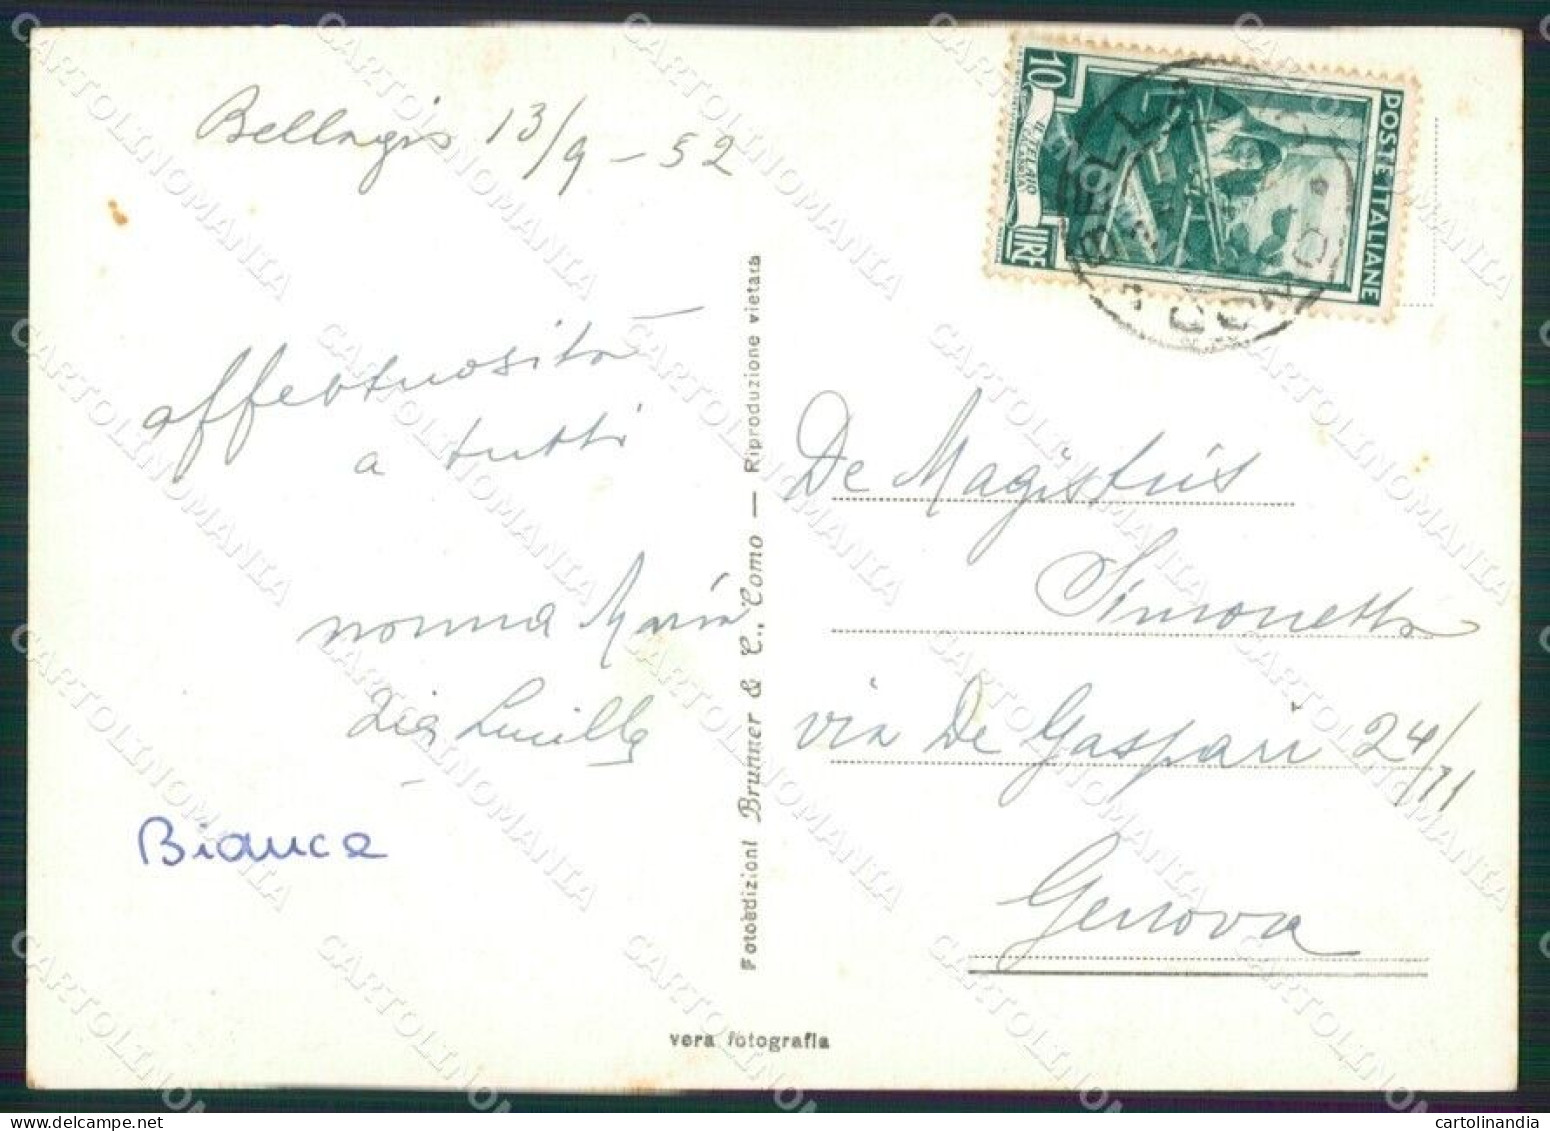 Bellagio 13/9-52
affectuosità
a tutti
nonna Maria
Zia Lucilla
Bianca
Fotoedizioni Brunner & C., Como — Riproduzione vietata
vera fotografia
10
LIRE
IL TELAIO
POSTE ITALIANE
De Magistris
Simonetta
via De Gaspari 24/11
Genova
CARTOLINOMANIA
cartolinandia